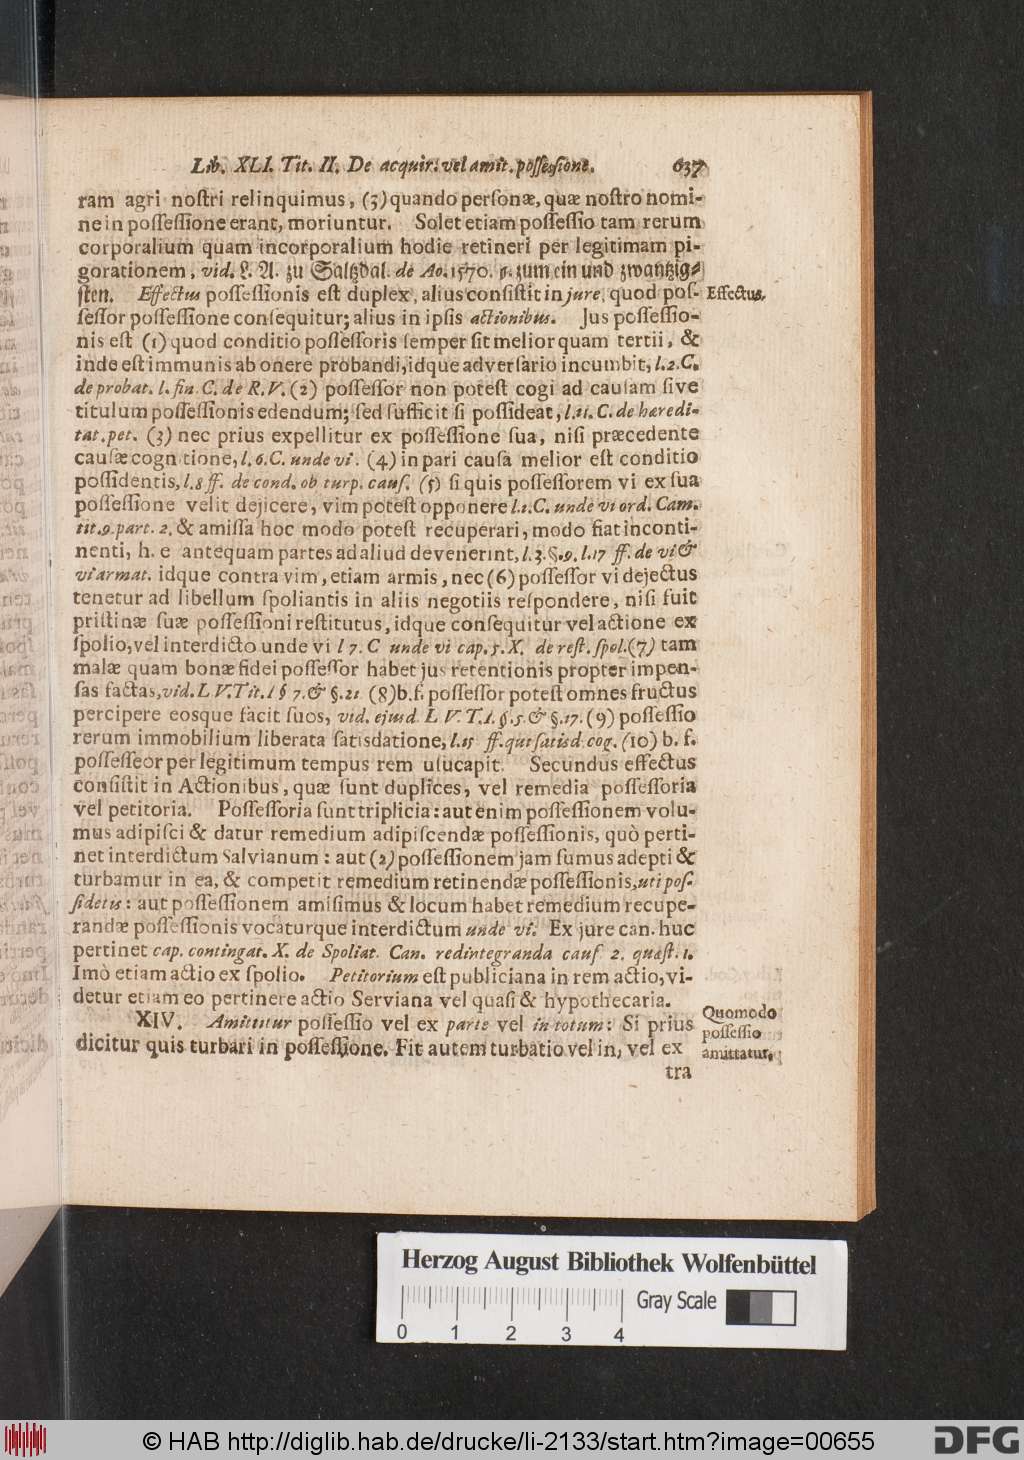 Lib. XLI. Tit. II. De acquir. vel amit. possessione. 637
ram agri nostri relinquimus, (3) quando personæ, quæ nostro nomi-
ne in possessione erant, moriuntur. Solet etiam possessio tam rerum
corporalium quam incorporalium hodie retineri per legitimam pi-
gorationem, vid. L. A. zu Saltzdal. de Ao. 1570. §. zum ein und zwantzig-
sten. Effectus possessionis est duplex, alius consistit in jure, quod pos-
Effectus.
sessor possessione consequitur; alius in ipsis actionibus. Jus possessio-
nis est (1) quod conditio possessoris semper sit melior quam tertii, &
inde est immunis ab onere probandi, idque adversario incumbit, l. 2. C.
de probat. l. fin. C. de R. V. (2) possessor non potest cogi ad causam sive
titulum possessionis edendum; sed sufficit si possideat, l. 11. C. de hæredi-
tat. pet. (3) nec prius expellitur ex possessione sua, nisi præcedente
causæ cognitione, l. 6. C. unde vi. (4) in pari causa melior est conditio
possidentis, l. 8 ff. de cond. ob turp. caus. (5) si quis possessorem vi ex sua
possessione velit dejicere, vim potest opponere l. 1. C. unde vi ord. Cam.
tit. 9. part. 2. & amissa hoc modo potest recuperari, modo fiat inconti-
nenti, h. e antequam partes ad aliud devenerint, l. 3. §. 9. l. 17 ff. de vi &
vi armat. idque contra vim, etiam armis, nec (6) possessor vi dejectus
tenetur ad libellum spoliantis in aliis negotiis respondere, nisi fuit
pristinæ suæ possessioni restitutus, idque consequitur vel actione ex
spolio, vel interdicto unde vi l 7. C unde vi cap. 5. X. de rest. spol. (7) tam
malæ quam bonæ fidei possessor habet jus retentionis propter impen-
sas factas, vid. L V. Tit. 1 § 7. & §. 21 (8) b. f. possessor potest omnes fructus
percipere eosque facit suos, vid. ejusd. L V. T. 1. §. 5. & §. 17. (9) possessio
rerum immobilium liberata satisdatione, l. 15 ff. qui satisd cog. (10) b. f.
possesseor per legitimum tempus rem usucapit. Secundus effectus
consistit in Actionibus, quæ sunt duplices, vel remedia possessoria
vel petitoria. Possessoria sunt triplicia: aut enim possessionem volu-
mus adipisci & datur remedium adipiscendæ possessionis, quò perti-
net interdictum Salvianum: aut (2) possessionem jam sumus adepti &
turbamur in ea, & competit remedium retinendæ possessionis, uti pos-
sidetis: aut possessionem amisimus & locum habet remedium recupe-
randæ possessionis vocaturque interdictum unde vi. Ex jure can. huc
pertinet cap. contingat. X. de Spoliat. Can. redintegranda caus 2. quæst. 1.
Imò etiam actio ex spolio. Petitorium est publiciana in rem actio, vi-
detur etiam eo pertinere actio Serviana vel quasi & hypothecaria.
XIV. Amittitur possessio vel ex parte vel in totum: Si prius
dicitur quis turbari in possessione. Fit autem turbatio vel in, vel ex
Quomodo
possessio
amittatur.
tra
Herzog August Bibliothek Wolfenbüttel
Gray Scale
0 1 2 3 4
© HAB http://diglib.hab.de/drucke/li-2133/start.htm?image=00655
DFG